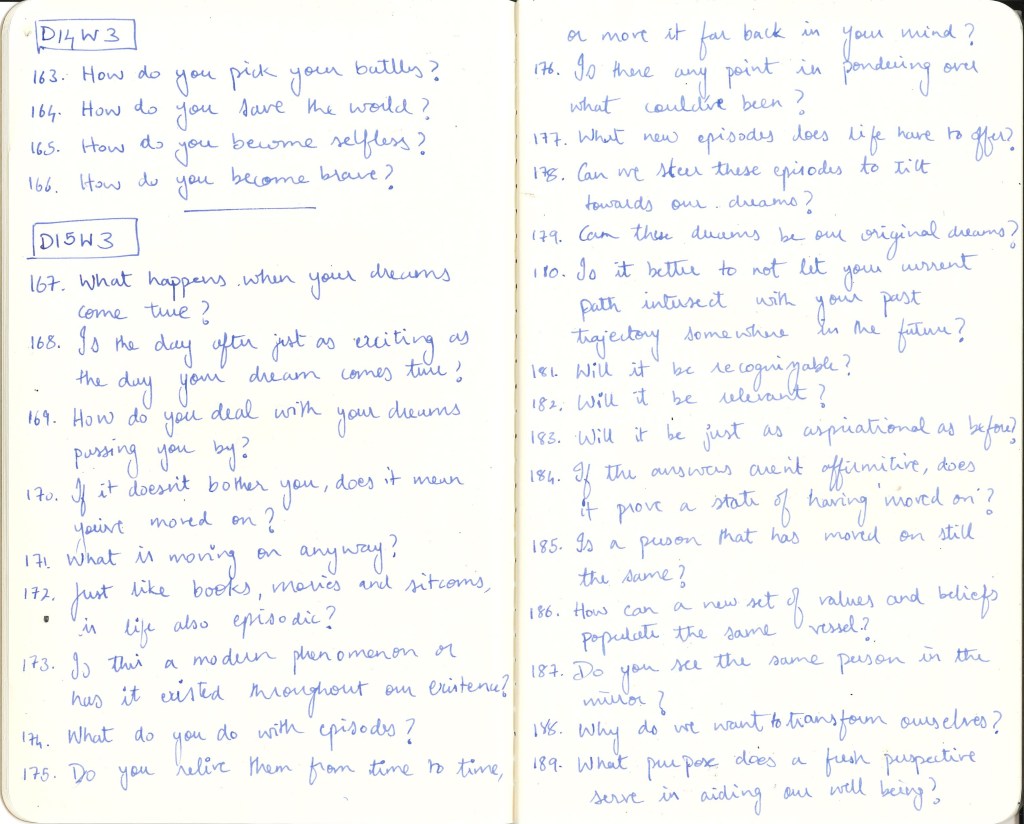 D14W3
163. How do you pick your battles?
164. How do you save the world?
165. How do you become selfless?
166. How do you become brave?
D15W3
167. What happens when your dreams
come true?
168. Is the day after just as exciting as
the day your dream comes true?
169. How do you deal with your dreams
passing you by?
170. If it doesn't bother you, does it mean
you've moved on?
171. What is moving on anyway?
172. Just like books, movies and sitcoms,
is life also episodic?
173. Is this a modern phenomenon or
has it existed throughout our existence?
174. What do you do with episodes?
175. Do you relive them from time to time,
or move it far back in your mind?
176. Is there any point in pondering over
what could've been?
177. What new episodes does life have to offer?
178. Can we steer these episodes to tilt
towards our dreams?
179. Can these dreams be our original dreams?
180. Is it better to not let your current
path intersect with your past
trajectory somewhere in the future?
181. Will it be recognizable?
182. Will it be relevant?
183. Will it be just as aspirational as before?
184. If the answers aren't affirmitive, does
it prove a state of having 'moved on'?
185. Is a person that has moved on still
the same?
186. How can a new set of values and beliefs
populate the same vessel?
187. Do you see the same person in the
mirror?
188. Why do we want to transform ourselves?
189. What purpose does a fresh perspective
serve in aiding our well being?